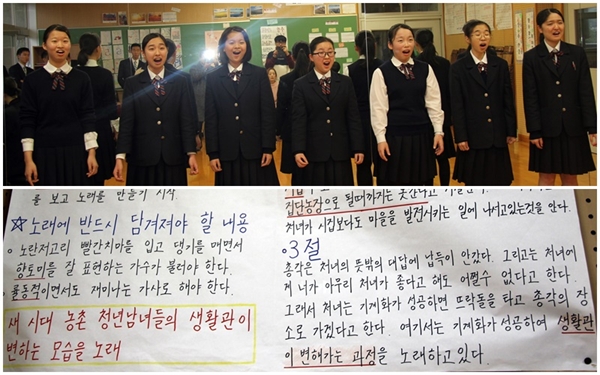 를 보고 노래를 만들기 시작.
☆노래에 반드시 담겨져야 할 내용
○ 노란저고리 빨간치마를 입고 댕기를 매면서
향토미를 잘 표현하는 가수가 불러야 한다.
○ 율동적이면서도 재미나는 가사로 해야 한다.
새 시대 농촌 청년남녀들의 생활관이
변하는 모습을 노래
집단농장으로 될때까지는
처녀가 시집보다도 마을을 발전시키는 일에 나서고있는것을 안다.
○3절
총각은 처녀의 뜻밖의 대답에 납득이 안간다. 그리고는 처녀에
게 너가 아무리 처녀가 좋다고 해도 어쩔수 없다고 한다.
그래서 처녀는 기계화가 성공하면 뜨락똘을 타고 총각의 장
소로 가겠다고 한다. 여기서는 기계화가 성공하여 생활관
이 변해가는 과정을 노래하고있다.